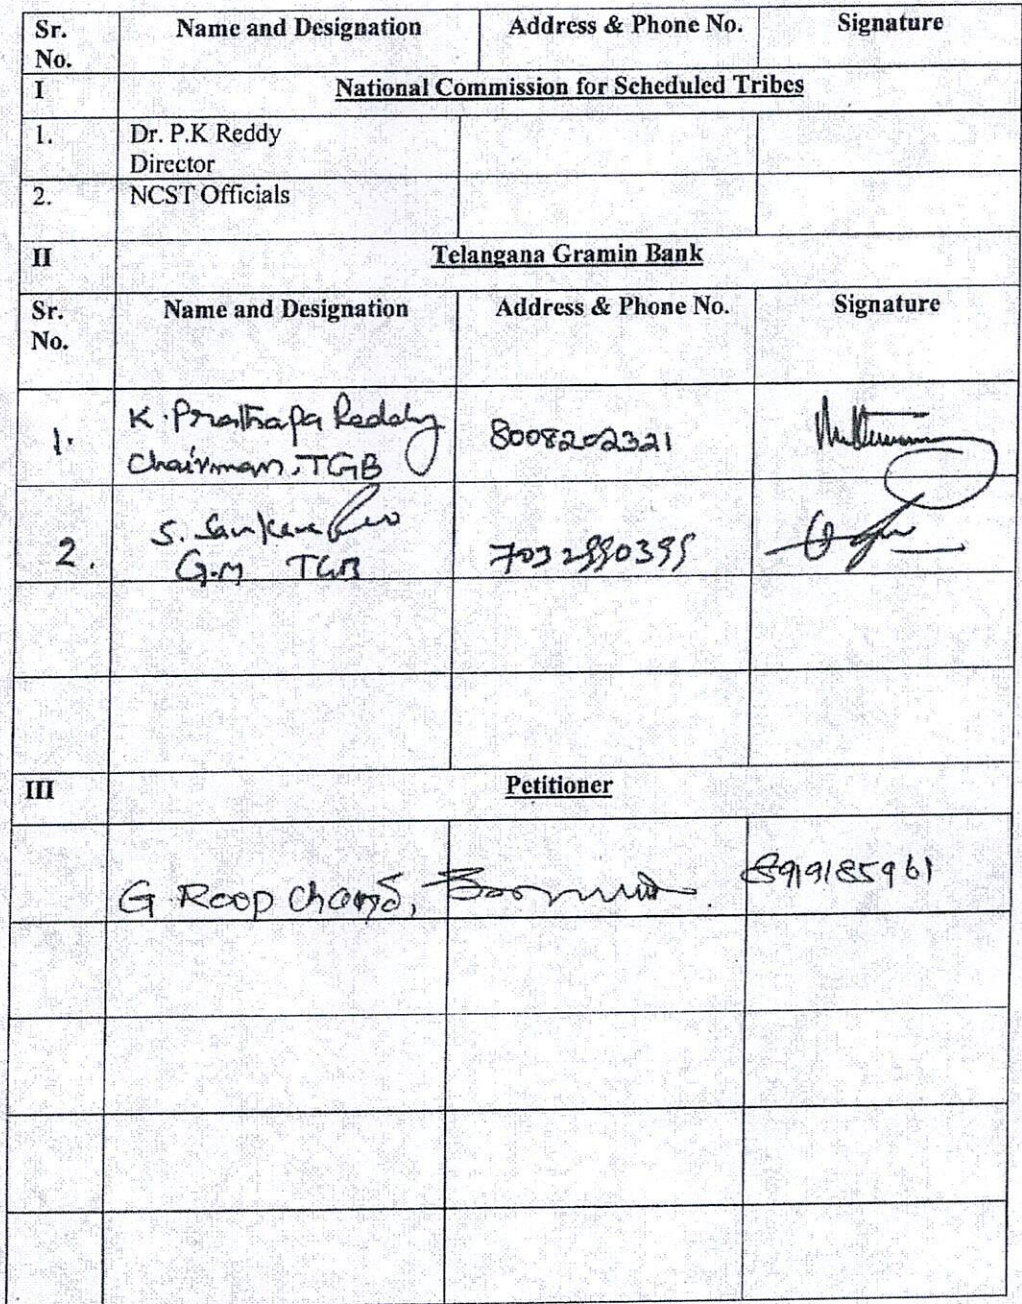 Sr. No. Name and Designation Address & Phone No. Signature
I National Commission for Scheduled Tribes
1. Dr. P.K Reddy
Director
2. NCST Officials
II Telangana Gramin Bank
Sr. No. Name and Designation Address & Phone No. Signature
1. K. Prathapa Reddy 8008202321
Chairman, TGB
2. S. Sankara Rao
G.M TGB
III Petitioner
G Roop Chand, 8919185961